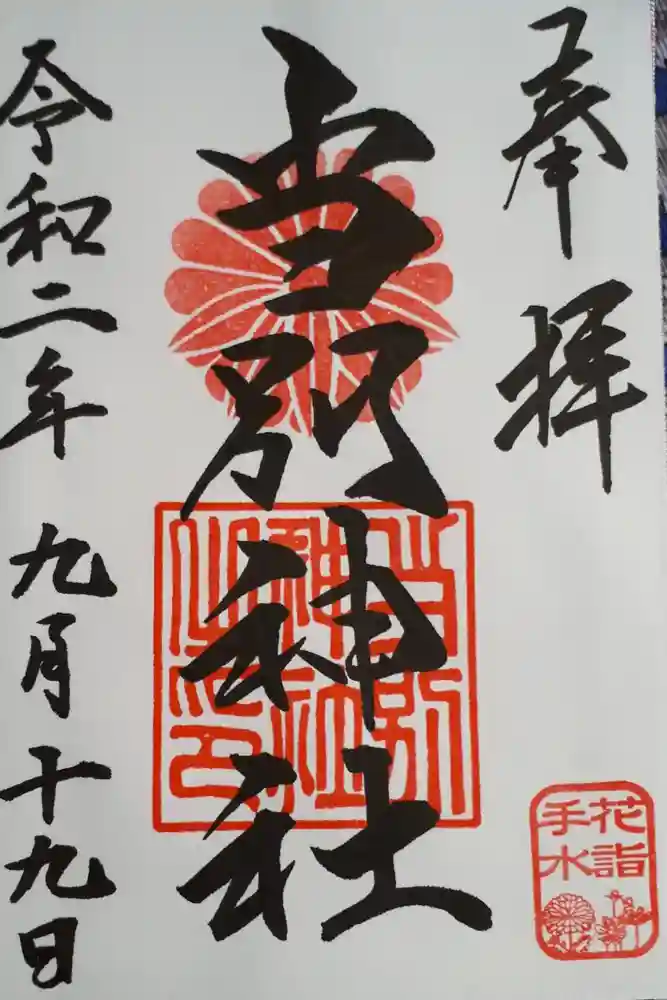 奉拝
当別神社
令和二年九月十九日
当別
神社
之印
花詣
手水